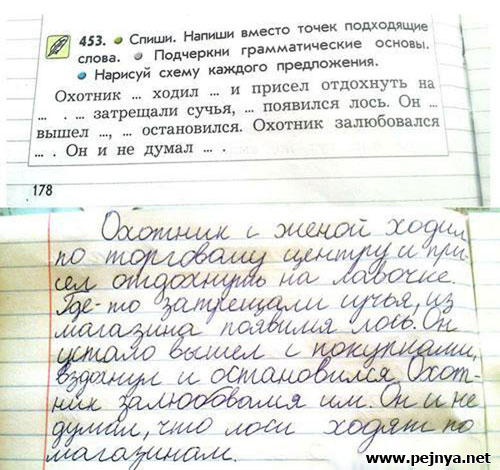 453. Спиши. Напиши вместо точек подходящие
слова. Подчеркни грамматические основы.
Нарисуй схему каждого предложения.
Охотник ... ходил ... и присел отдохнуть на
... . ... затрещали сучья, ... появился лось. Он ...
вышел ..., ... остановился. Охотник залюбовался
... . Он и не думал ... .
178
Охотник с женой ходил
по торговому центру и при-
сел отдохнуть на лавочке.
Где-то затрещали сучья, из
магазина появился лось. Он
устало вышел с покупками,
вздохнул и остановился. Охот-
ник залюбовался им. Он и не
думал, что лоси ходят по
магазинам.
www.pejnya.net